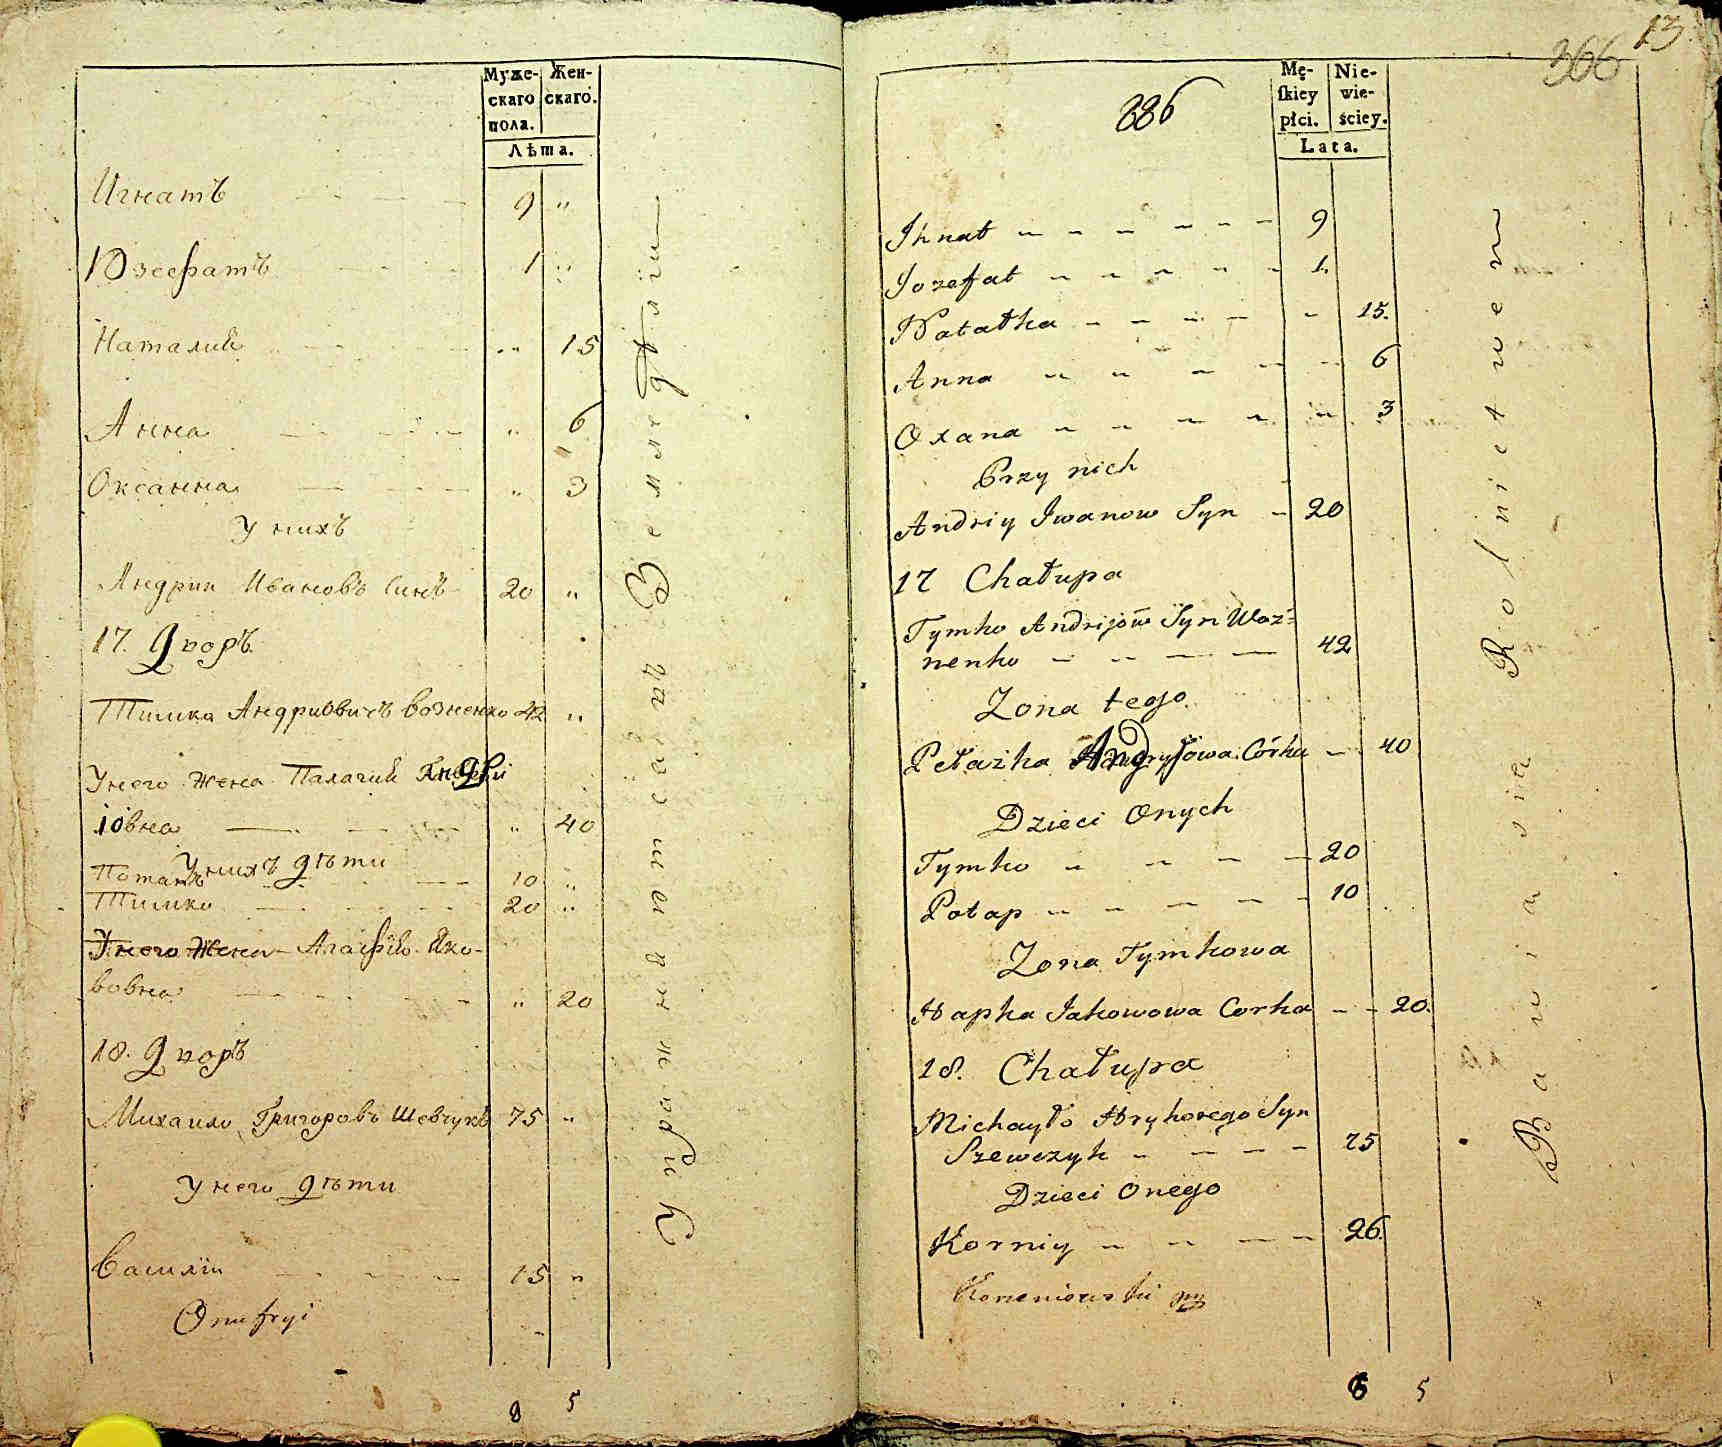 Муже-
скаго
пола.
Жен-
скаго.
Лѣта.
Игнатъ 9 "
Юзефатъ 1 "
Наталия " 15
Анна " 6
Оксанна " 3
У нихъ
Андрии Ивановъ Синъ 20 "
17. Дворъ.
Тимко Андриовичъ Возненко 42 "
У него Жена Палагия Андрі
iовна " 40
У нихъ дѣти
Потапъ 10 "
Тимко 20 "
У него Жена Агафiя Яко-
вовна " 20
18. Дворъ
Михаило Григоровъ Шевчукъ 75 "
У него дѣти
Василiи 15 "
Onufryi
8 5
Упражняющейся Земледѣлiи
13
366
886
Mę-
ſkiey
płci.
Nie-
wie-
ściey.
Lata.
Ihnat 9
Iozefat 1.
Natałka 15.
Anna 6
Oxana 3
Przy nich
Andriy Iwanow Syn 20
17 Chałupa
Tymko Andrijow Syn Woz=
nenko 42
Zona tego
Pełazka Andryjowa Córka 40
Dzieci Onych
Tymko 20
Potap 10
Zona Tymkowa
Hapka Jakowowa Corka 20.
18. Chałupa
Michayło Hryhorego Syn
Szewczyk 75
Dzieci Onego
Korniy 26.
6 5
Bawią się Rolnictwem